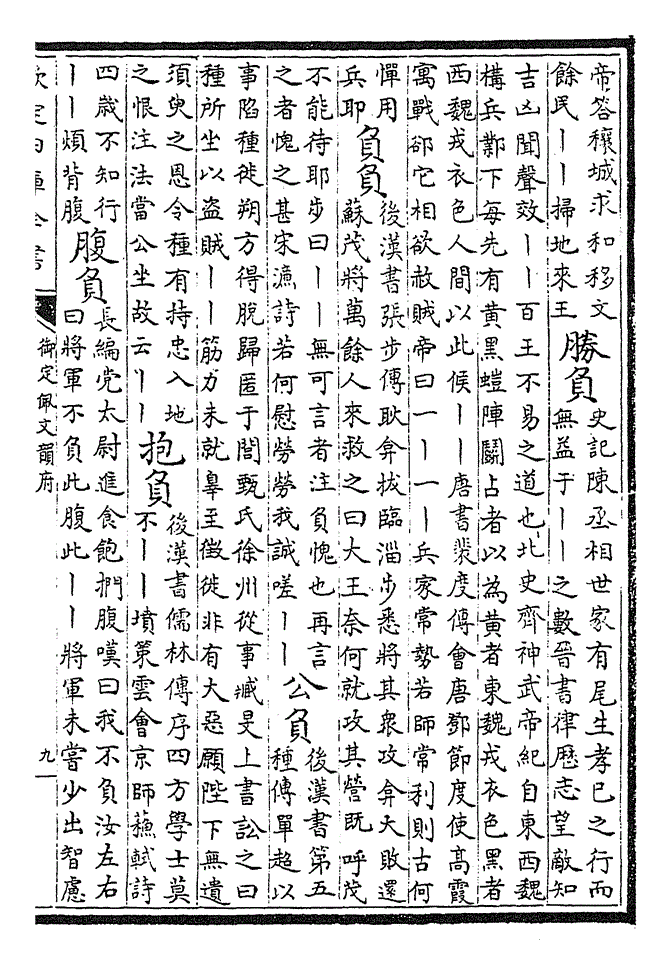 帝答穰城求和移文
餘民丨丨掃地來王
勝負
史記陳丞相世家有尾生孝已之行而
無益于丨丨之數晉書律歷志望敵知
吉凶聞聲效丨丨百王不易之道也北史齊神武帝紀自東西魏
構兵鄴下每先有黃黑螘陣鬬占者以為黃者東魏戎衣色黑者
西魏戎衣色人間以此候丨丨唐書裴度傳會唐鄧節度使高霞
寓戰卻它相欲赦賊帝曰一丨一丨兵家常勢若師常利則古何
憚用
兵耶
負負
後漢書張步傳耿弇拔臨淄步悉將其衆攻弇大敗還
蘇茂將萬餘人來救之曰大王奈何就攻其營既呼茂
不能待耶步曰丨丨無可言者注負愧也再言
之者愧之甚宋濂詩若何慰勞勞我誠嗟丨丨
公負
後漢書第五
種傳單超以
事陷種徙朔方得脫歸匿于閭甄氏徐州從事臧旻上書訟之曰
種所坐以盜賊丨丨筋力未就辠至徵徙非有大惡願陛下無遺
須臾之恩令種有持忠入地
之恨注法當公坐故云丨丨
抱負
後漢書儒林傳序四方學士莫
不丨丨墳策雲會京師蘇軾詩
四歲不知行
丨丨煩背腹
腹負
長編党太尉進食飽捫腹嘆曰我不負汝左右
曰將軍不負此腹此丨丨將軍未嘗少出智慮
欽定四庫全書
御定佩文韻府
九